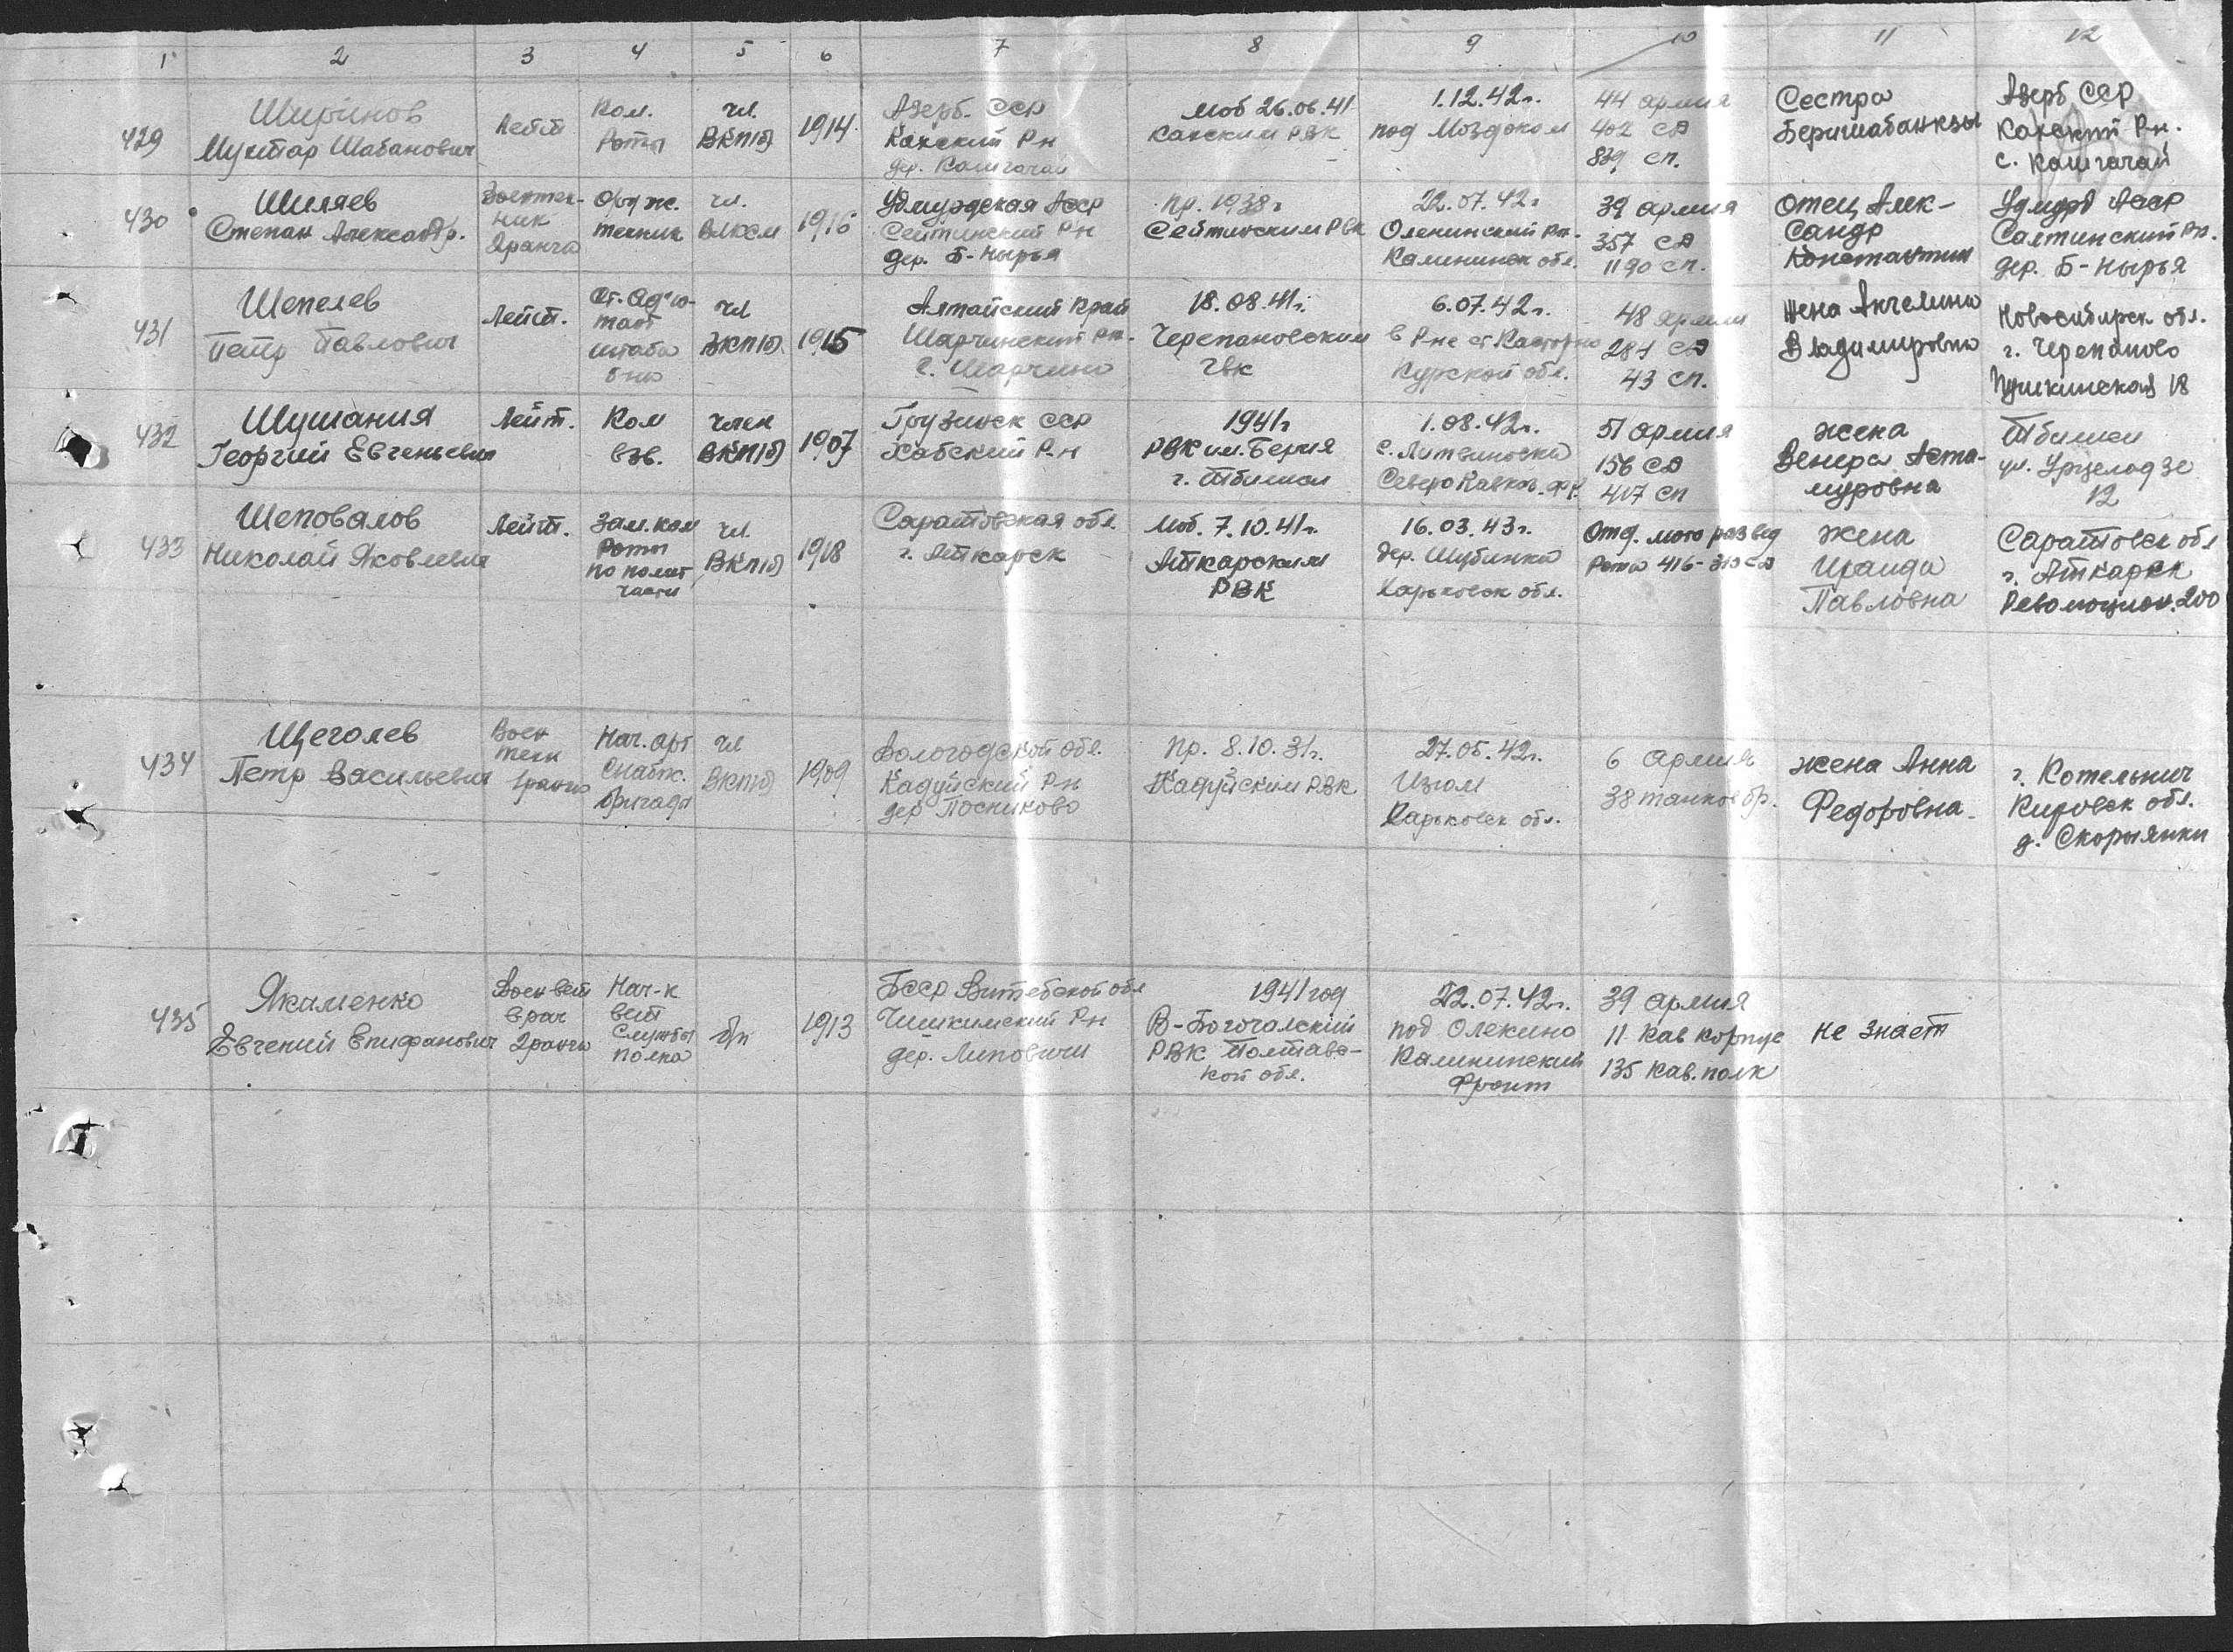 1 2 3 4 5 6 7 8 9 10 11 12
429
Ширинов
Мухтар Шабанович
Лейт
Ком.
Роты
чл.
ВКП(б)
1914
Азерб. ССР
Какский Рн
дер. Кашгачай
моб 26.06.41
Какским РВК
1.12.42г.
под Моздоком
44 армия
402 СД
839 сп.
Сестра
Беришабанкзы
Азерб ССР
Какский Рн.
с. Кашгачай
430
Шиляев
Степан Александр.
Воентех-
ник
2ранга
Оруж.
техник
чл.
ВЛКСМ
1916
Удмурдская АССР
Сейтинский Рн
дер. Б-Нырья
пр. 1938г
Сейтинским РВК
22.07.42г
Оленинский рн.
Калининск обл.
39 армия
357 СД
1190 сп.
отец Алек-
сандр
Константин
Удмурд АССР
Салтинский рн.
дер. Б-Нырья
431
Шепелев
Петр Павлович
Лейт.
Ст. Адъю-
тант
штаба
б-на
чл
ВКП(б)
1915
Алтайский Край
Шарчинский рн.
с. Шарчино
18.08.41г.
Черепановским
ГВК
6.07.42г.
в Рне ст Касторно
Курской обл.
48 армия
284 СД
43 сп.
жена Ангелина
Владимировна
Новосибирск обл.
г. Черепаново
Пушкинская 18
432
Шушания
Георгий Евгеньевич
Лейт.
Ком
взв.
член
ВКП(б)
1907
Грузинск ССР
Хобский Р-н
1941г
РВК им. Берия
г. Тбилиси
1.08.42г.
с. Литвиновка
Северо Кавказ. фр.
51 армия
156 СД
417 сп
жена
Венера Аста-
муровна
Тбилиси
ул. Урцеладзе
12
433
Шеповалов
Николай Яковлевич
Лейт.
Зам. ком
Роты
по полит
части
чл.
ВКП(б)
1918
Саратовская обл.
г. Аткарск
Моб. 7.10.41г.
Аткарским
РВК
16.03.43г.
дер. Шубинка
Харьковск обл.
Отд. мото развед
Рота 416-313 СД
жена
Ираида
Павловна
Саратовск обл
г. Аткарск
Революцион. 200
434
Щеголев
Петр Васильевич
Воен
техн
1ранга
Нач. арт
Снабж.
бригады
чл
ВКП(б)
1909
Вологодской обл.
Кадуйский Рн
дер Посниково
пр. 8.10.31г.
Кадуйским РВК
27.05.42г.
Изюм
Харьковск обл.
6 армия
38 танков бр.
жена Анна
Федоровна.
г. Котельнич
Кировск обл.
д. Скорняки
435
Якименко
Евгений Епифанович
Воен вет
врач
2ранга
Нач-к
вет
Службы
полка
б/п
1913
БССР Витебской обл
Чашкинский Рн
дер. Липовичи
1941 год
В-Богочалский
РВК Полтавс-
кой обл.
22.07.42г.
под Олекино
Калининский
Фронт
39 армия
11 Кав корпус
135 кав. полк
не знает